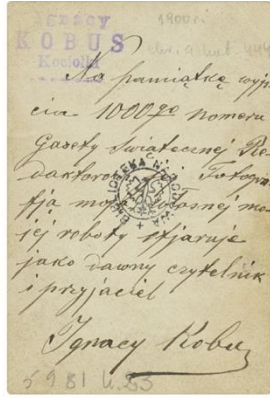 Ignacy
KOBUS
Kościołki
1900 r.
Na pamiątkę wyj
cia 1000go nomeru
Gazety świątecznej Re
daktorowi Fotogra
fja moja własnej mo
jej roboty ofjaruje
jako dawny czytelnik
i przyjaciel
Ignacy Kobus
5981